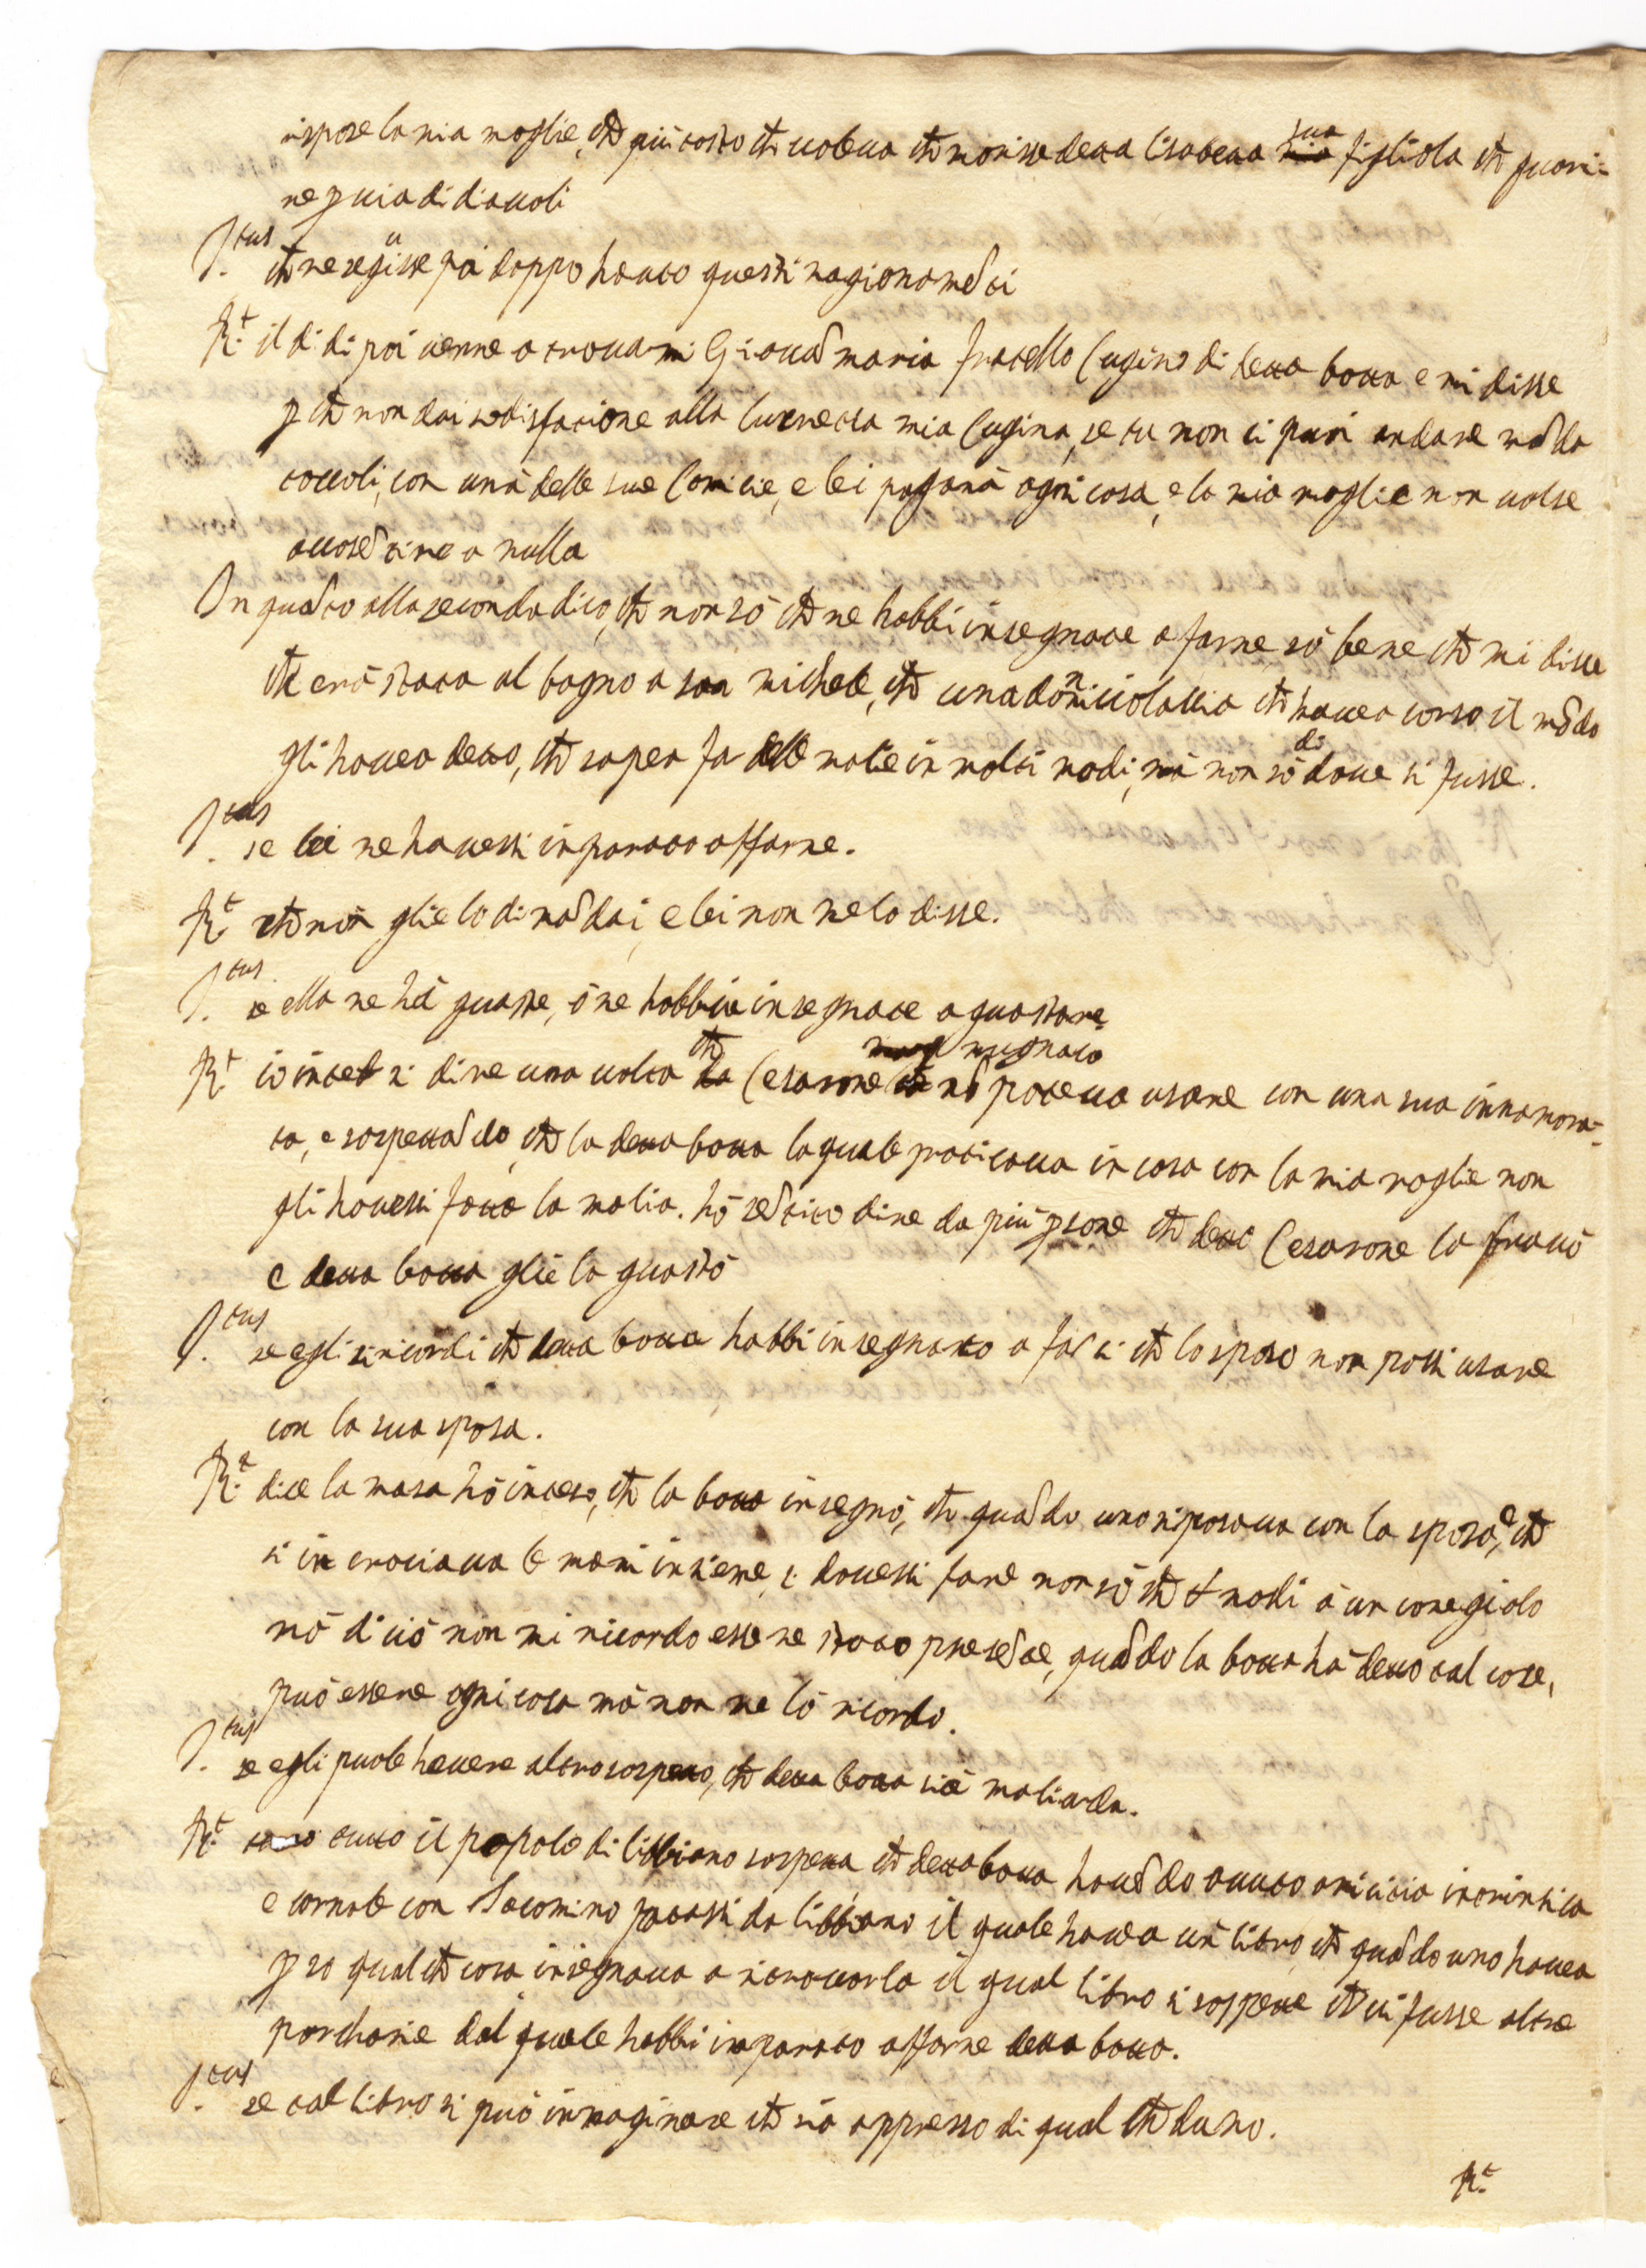 rispose la mia moglie, che piu tosto ch uoleua che morisse detta lisabetta sua figliola che guari=
ne p uia di diauoli
I.tus che ne seguisse poi doppo hauto questi ragionamẽti
R.t il di di poi uenne a trouarmi Giouãmaria fratello Cugino di detta botta e mi disse
p che non dai sodisfatione alla lucretia mia Cugina, se tu non ci puoi andare mãda
coccoli, con una delle sue Camicie, e lei pagarà ogni cosa, e la mia moglie non uolse
acconsẽtire a nulla
In quãto alla seconda dico, che non sò che ne habbi insegnate a farne, sò bene che mi disse
che era stata al bagno a san michele, che una donnicciolaccia che hauea corso il mõdo
gli hauea detto, che sapea fa delle malie in molti modi, mà non sò di doue si fusse.
I.tus se lei ne hauessi inparato affarne.
R.t che non glie lo dimãdai, e lei non me lo disse.
I.tus se ella ne hà guaste, ò ne habbia insegnate a guastare
R.t io intesi dire una uolta che Cesarone mugnaio nõ poteua usare con una sua innamora=
ta, e sospettãdo, che la detta botta la quale praticaua in casa con la mia moglie non
gli hauessi fatta la malia. hò sẽtito dire da più psone che detto Cesarone la trouò
e detta botta glie la guastò
I.tus se egli si ricordi che detta botta habbi insegnato a far si che lo sposo non possi usare
con la sua sposa.
R.t dice la masa hò inteso, che la botta insegnò, che quãdo uno si posaua con la sposa, e che
si incrociaua le mani insieme, si douessi fare non sò che nodi à un coregiolo
mà di ciò non mi ricordo essere stato presẽte, quãdo la botta hà detto tal cose,
può essere ogni cosa mà non me lo ricordo.
I.tus se egli puole hauere altro sospetto, che detta botta sia maliarda.
R.t tutto il popolo di libbiano sospetta che detta botta hauẽdo auuto amicitia intrinsica
e carnale con Iacomino da libbiano il quale hauea un libro, che quãdo uno hauea
pso qual che cosa insegnaua a ritrouarla il qual libro si sospetta che ui fusse altre
porcharie dal quale habbi imparato affarne detta botta.
I.tus se tal libro si può inmaginare che sia appresso di qual che duno.
R.t